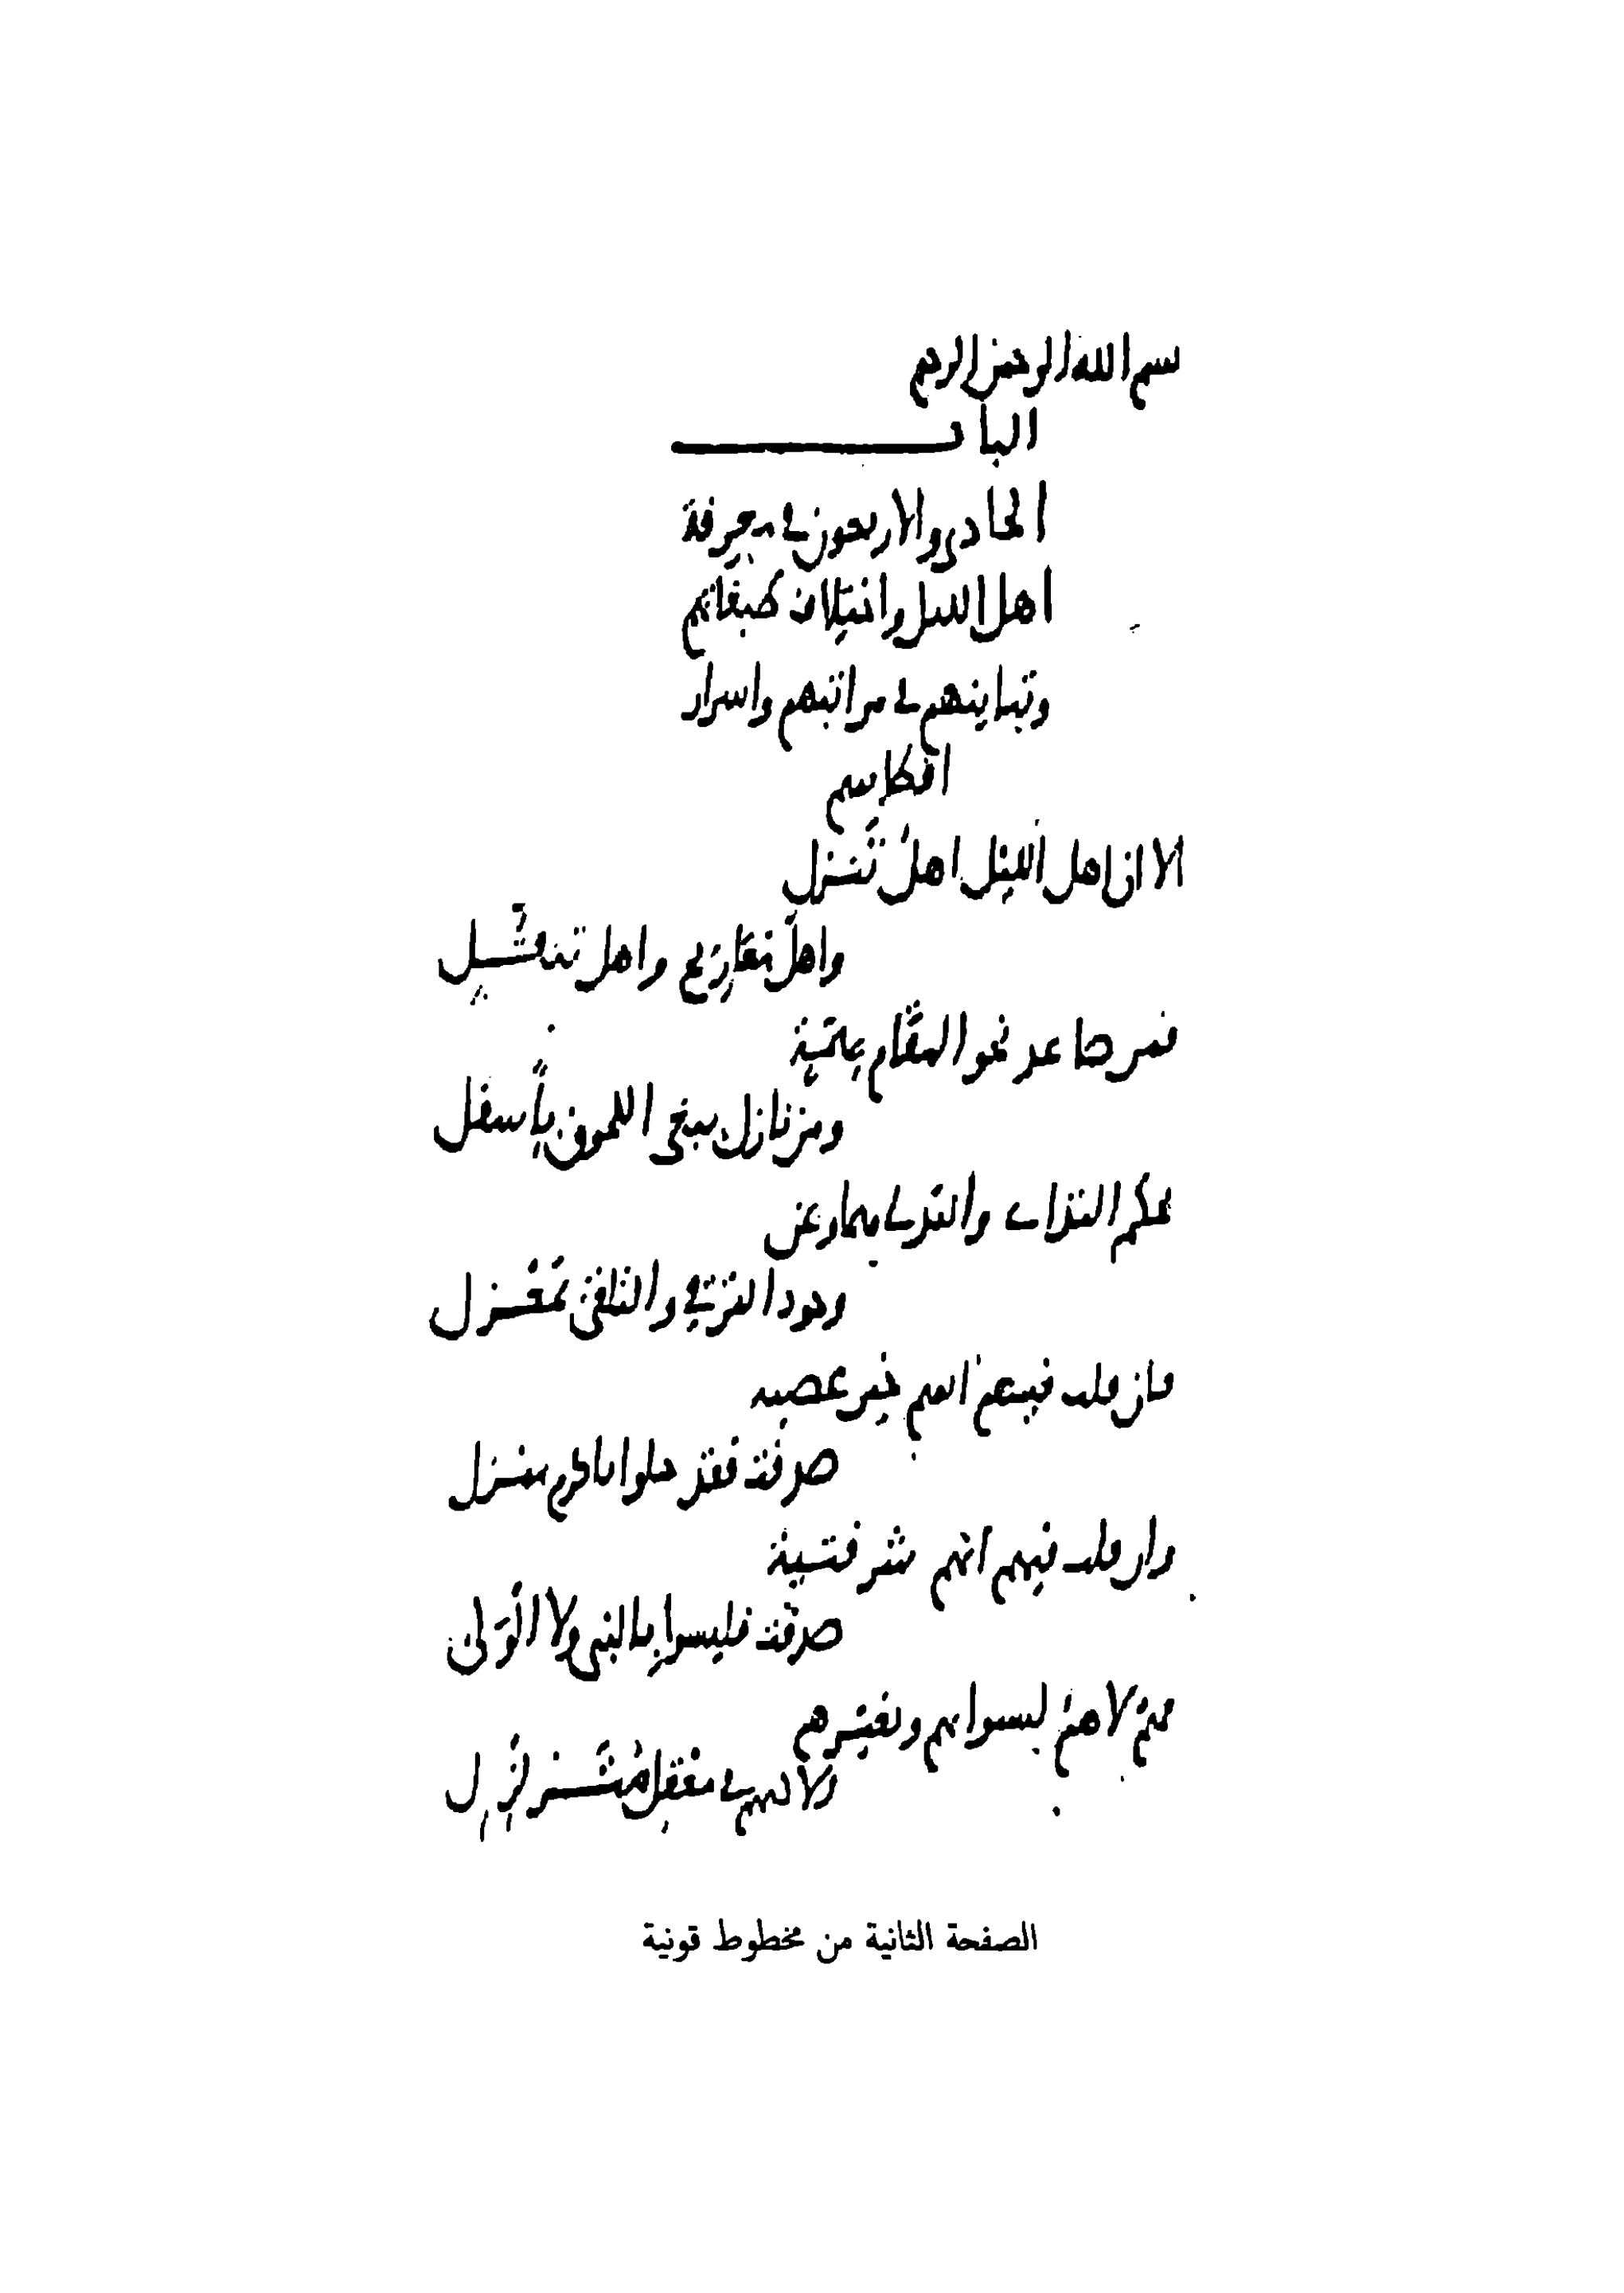 بسم الله الرحمن الرحيم
الباب
الحادى والاربعون فى معرفة
اهل الليل واختلاف طبقاتهم
وتباينهم فى مراتبهم واسرار
اقطابهم
الا ان اهل الليل اهل تنزل
واهل معاريج واهل تنقل
فمن صاعد نحو المقام بهمة
ومن نازل يبغى اللحوق بأسفل
بحكم التدانى والتدلى هما وعن
وجود الترقى والتلقى بمعزل
فان قلت فيهم انهم خير عصبة
صدقت فقد حلوا باكرم منزل
وان قلت فيهم انهم شر فتية
صدقت فليسوا بالنبى ولا الولى
فهم لا هم ليسوا بهم وبغيرهم
ولا لهم فى معقل
الصفحة الثانية من مخطوط قونية